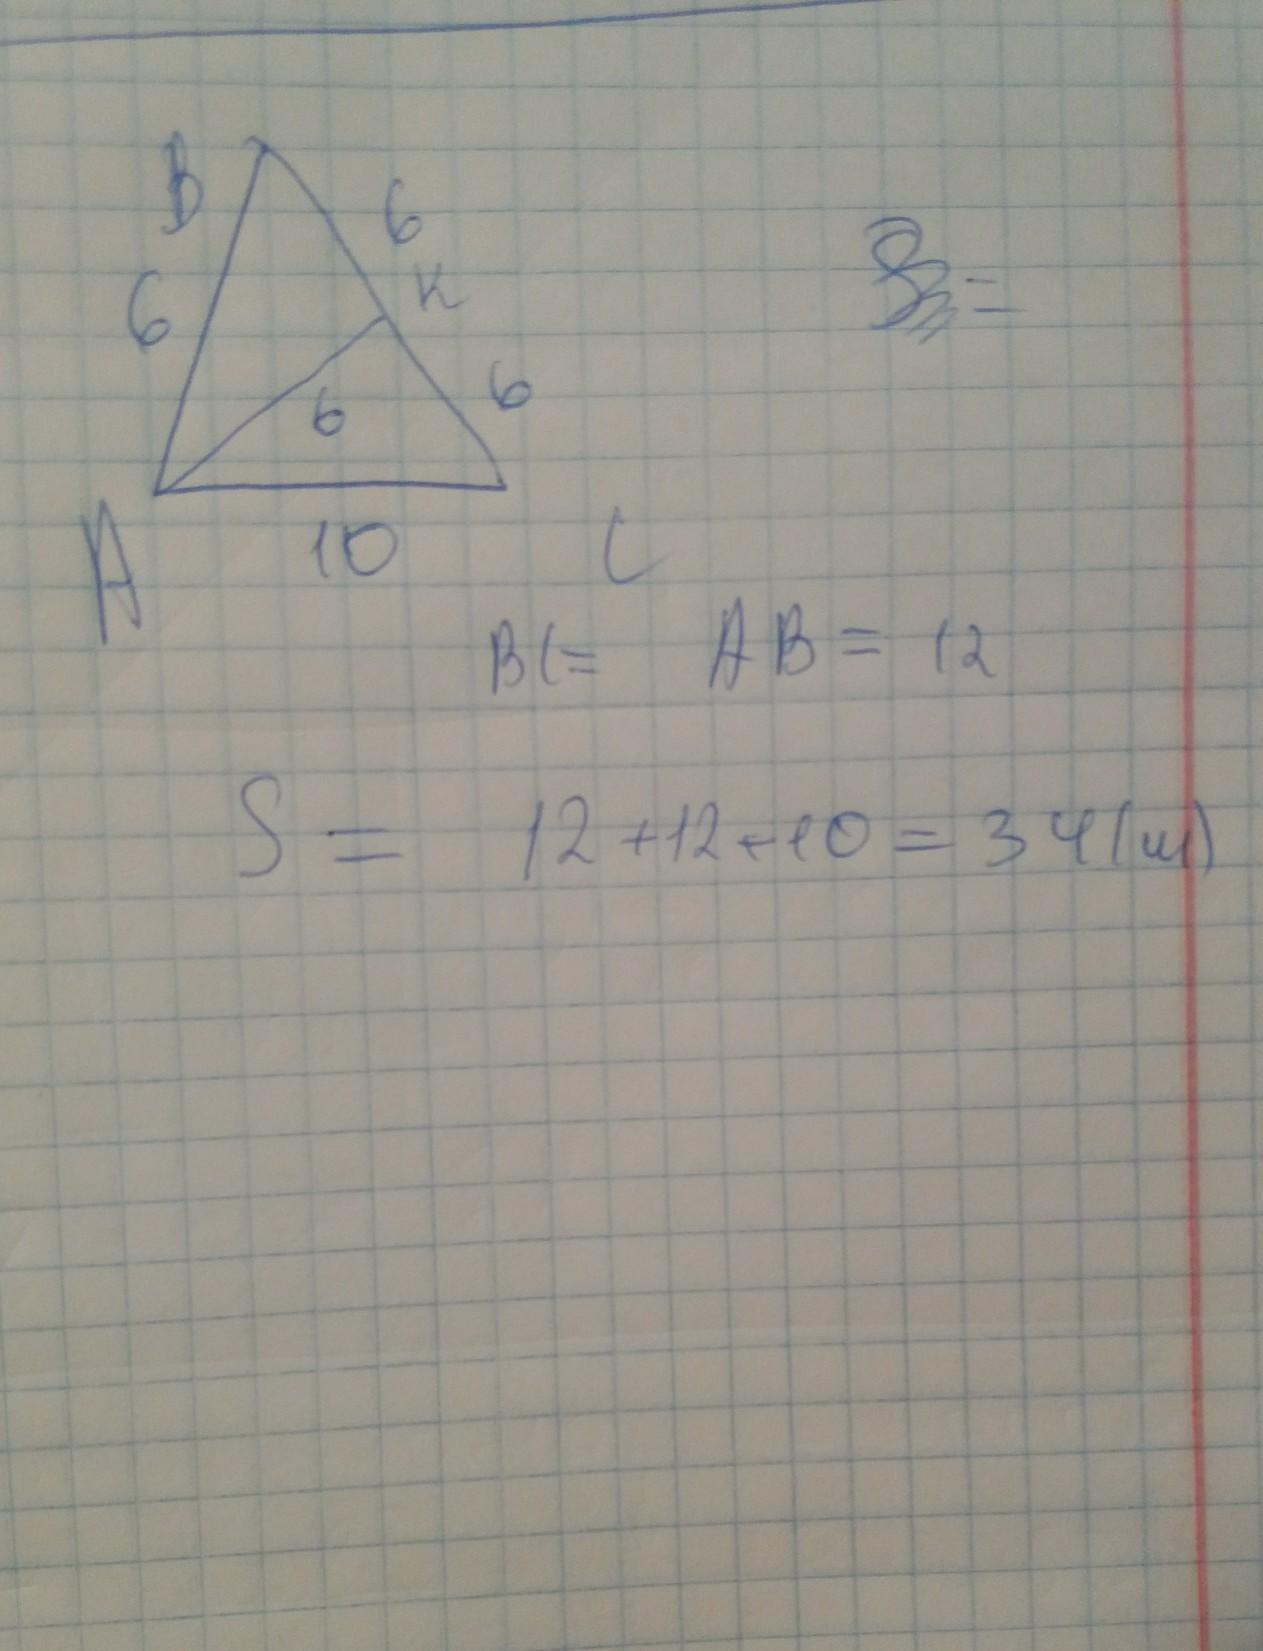 B
6
K
6
S =
6
6
A
10
C
BC= AB = 12
S = 12+12+10=34(м)